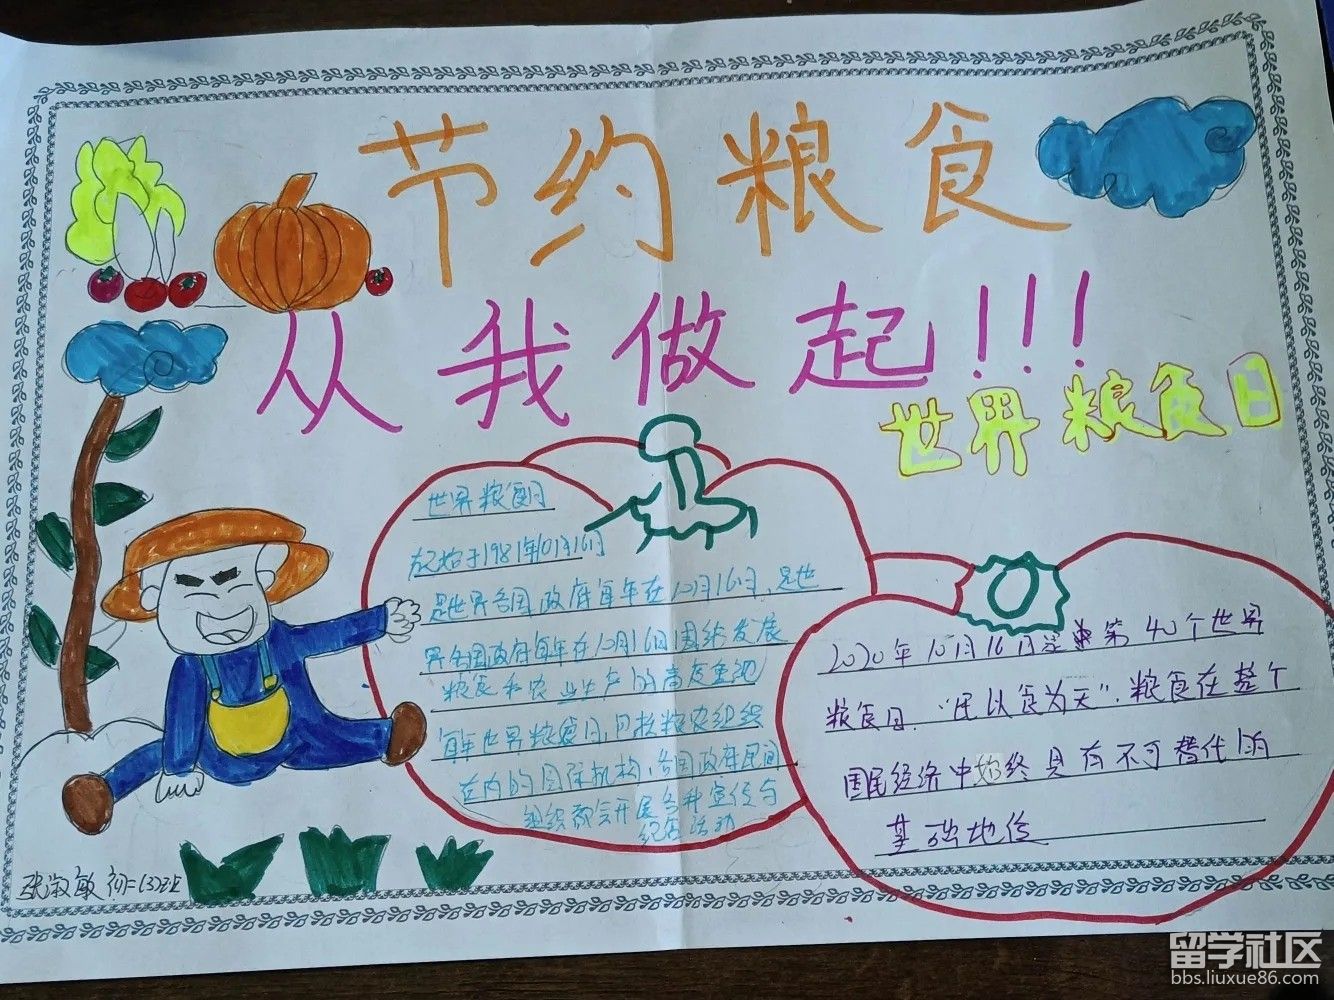 节约粮食
从我做起!!!
世界粮食日
世界粮食日
起始于1981年10月16日
是世界各国政府每年在10月16日,是世
界各国政府每年在10月16日围绕发展
粮食和农业生产的高度重视
每年世界粮食日,包括粮农组织
在内的国际机构、各国政府民间
组织都会开展各种宣传与
纪念活动
2020年10月16日是第40个世界
粮食日.“民以食为天”.粮食在整个
国民经济中始终具有不可替代的
基础地位
张淑敏 初二(3)班
留学社区
bbs.liuxue86.com